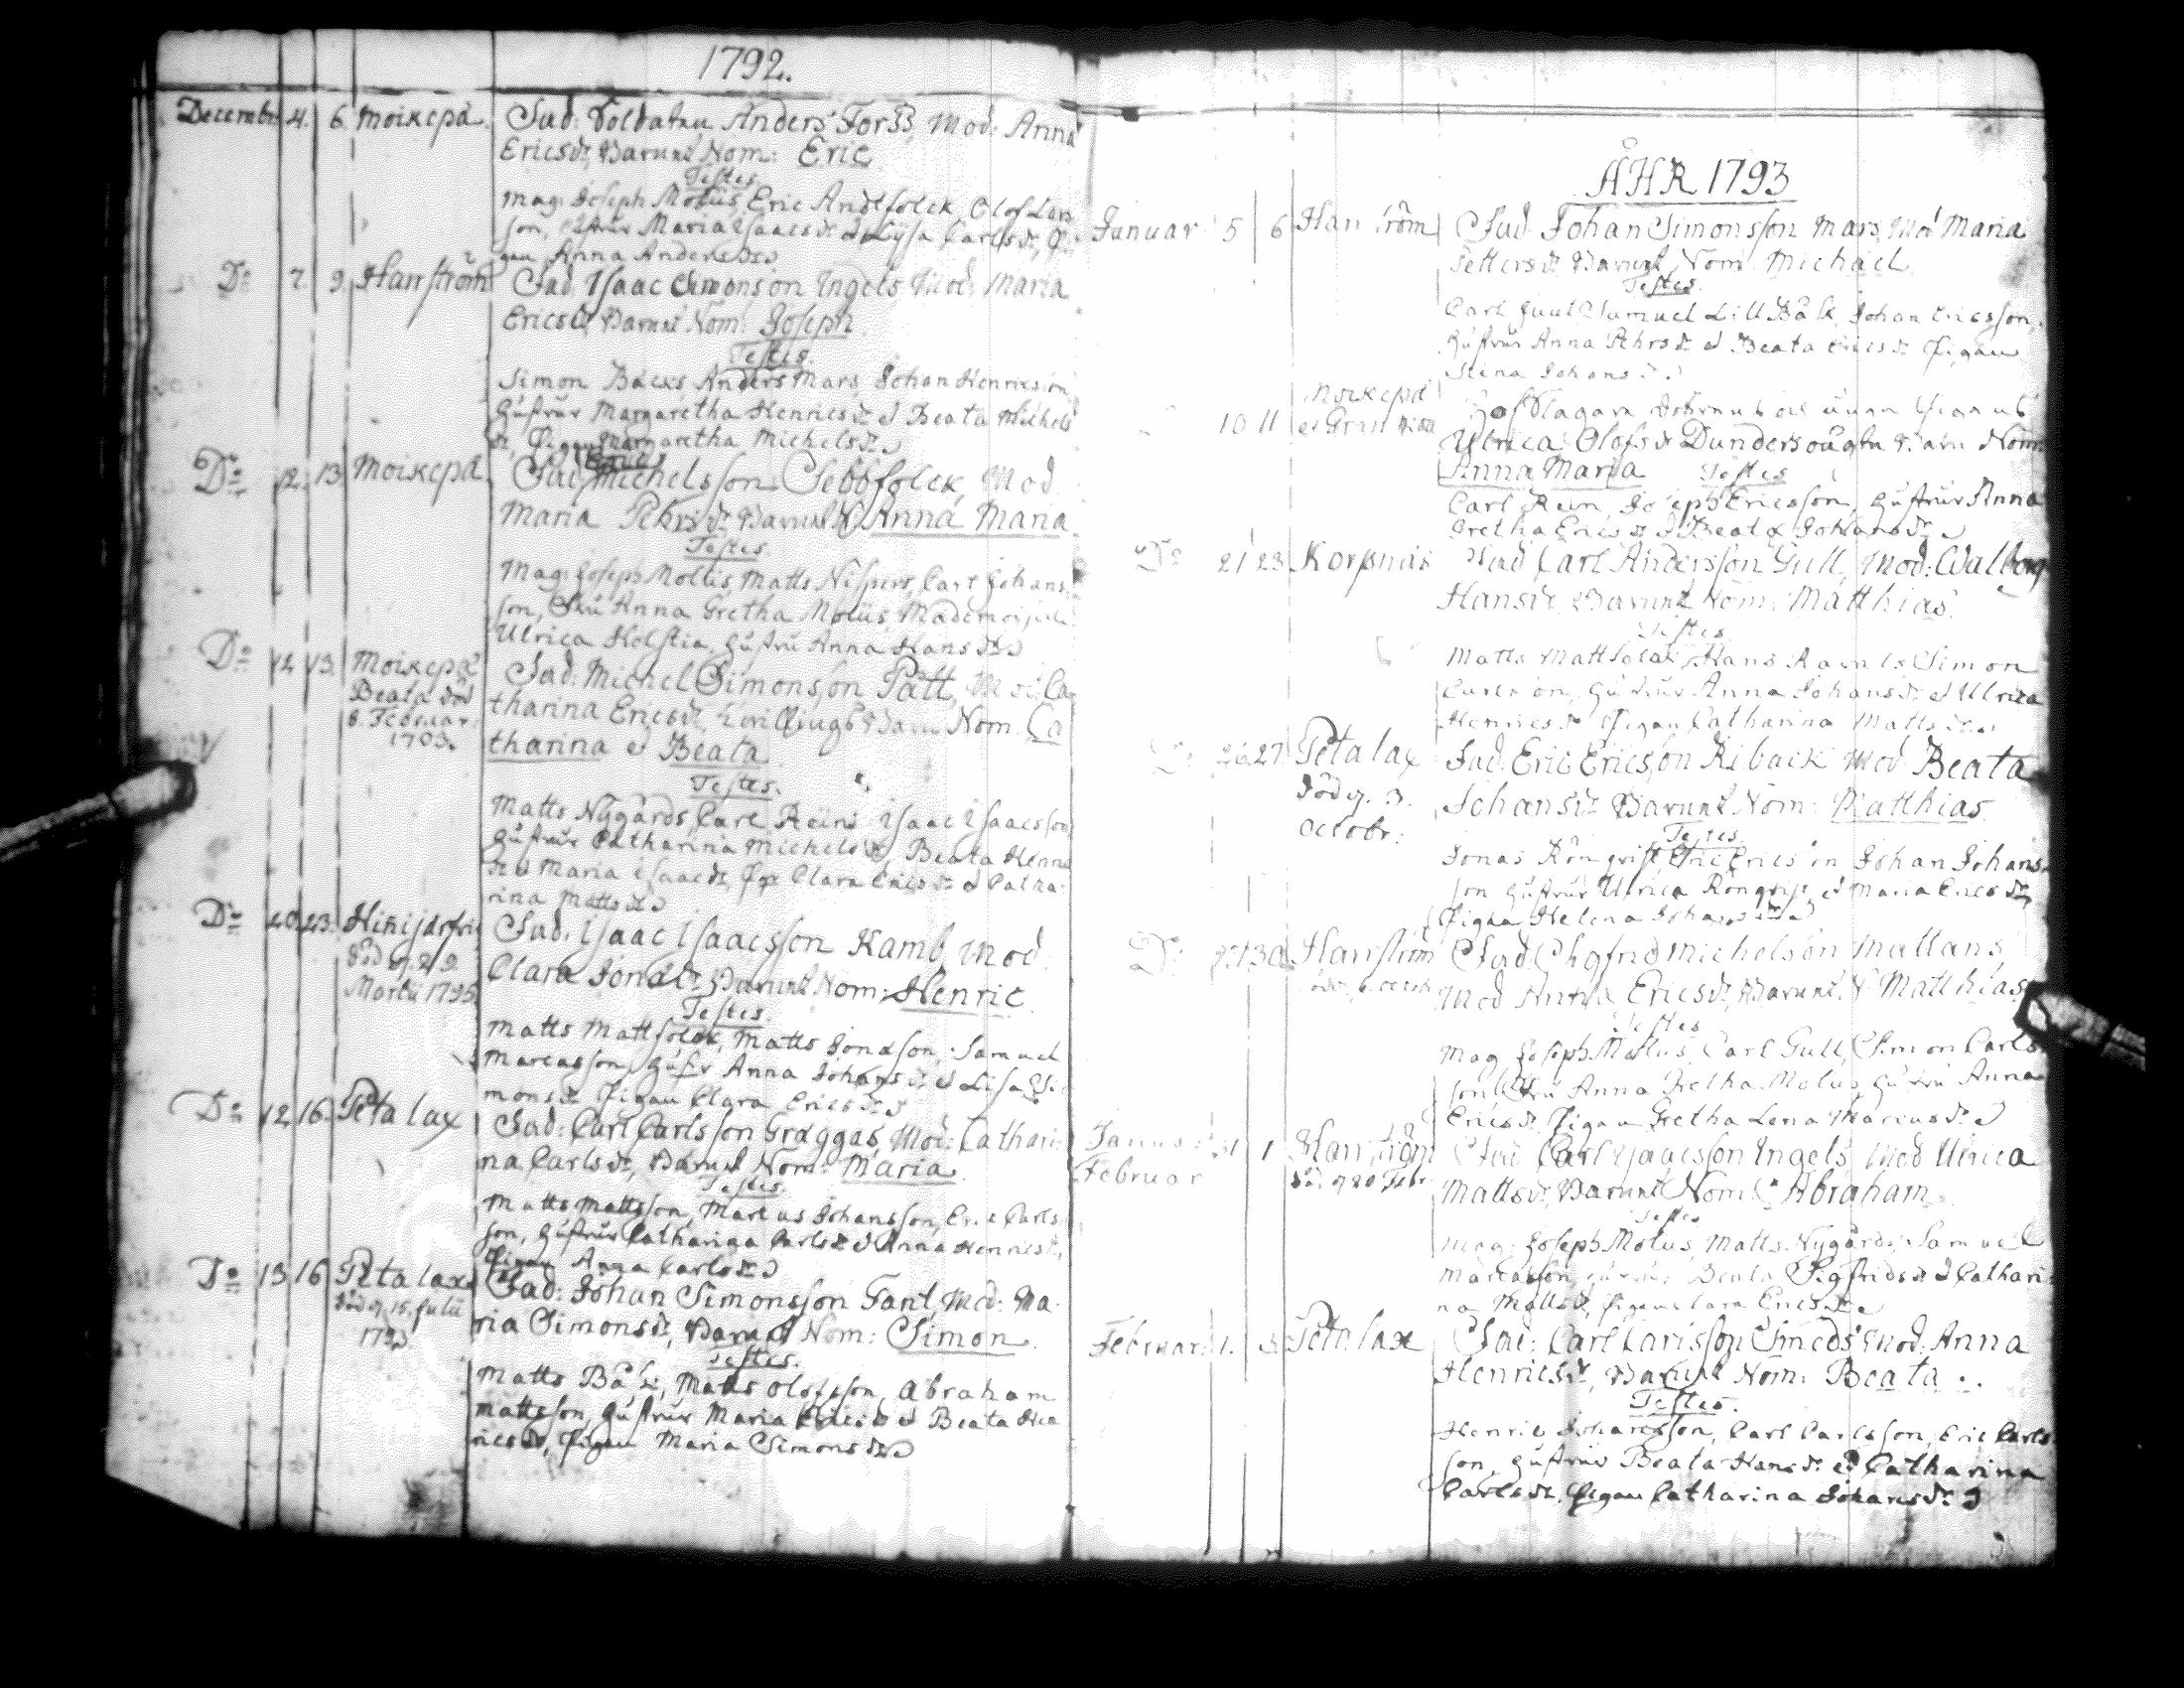 1792.
Decembr. 4. 6. Moikepä. Fad: Soldaten Anders Forss, Mod: Anna
Ericsdr, Barnet Nom: Eric
Testes.
Mag: Joseph Molüs, Eric Andtfolck, Olof Lars
son, Hustrur Maria Isaacsdr et Lysa Carlsdr,
gan Anna Andersdr
Do 7. 9. Harrström Fad. Isaac Simonson Ingels Mod: Maria
Ericsdr, Barnet Nom: Joseph.
Testes.
Simon Bäcks, Anders Mars, Johan Henricson,
Hustrur Margaretha Henricsdr et Beata Michels
dr, Pigan Margaretha Michelsdr
Do 12. 13. Moikepä Fad. Michelsson Sebbfolck, Mod
Maria Pehrsdr Barnet N Anna Maria
Testes
Mag: Joseph Molüs, Matts Nissers, Carl Johans
son, Fru Anna Gretha Molüs, Mademoiselle
Ulrica Holstia, Hustru Anna Hansdr
Do 12. 13. Moikepä Fad: Michel Simonsson Pått, Mod: Ca
Beata död
8. Februar.
1793.
tharina Ericsdr, Twillings Barn Nom. Ca
tharina et Beata.
Testes.
Matts Nygårds, Carl Reins, Isaac Isaacsson
Hustrur Catharina Michelsdr, Beata Henric
dr et Maria Isaacsdr, Pig. Clara Ericsdr et Catha
rina Mattsdr
Do 20. 23. Fad. Isaac Isaacsson Kamb, Mod.
Martii 1795.
Clara Jonædr, Barnet Nom: Henric
Testes.
Matts Mattfolck, Matts Jonæson, Samuel
Marcusson, Hustr Anna Johansdr et Lisa Si
monsdr Pigan Clara Ericsdr
Do 12 16. Petalax Fad: Carl Carlsson Gräggas, Mod: Cathari
na Carlsdr, Barnet Nom: Maria.
Testes.
Matts Mattsson, Marcus Johansson, Eric Carls
son, Hustrur Catharina Carlsdr et Anna Henricsdr,
Pigan Anna Carlsdr
Do 13 16 Petalax Fad: Johan Simonsson Fant, Mod: Ma
död d. 15. Julii
1793
ria Simonsdr, Barnet Nom: Simon.
Testes.
Matts Bäck, Matts Olofsson, Abraham
Mattsson, Hustrur Maria Ericsdr et Beata Hen
ricsdr, Pigan Maria Simonsdr
ÅHR 1793
Januar 5 6 Harrström Fad. Johan Simonsson Mars, Mod Maria
Pettersdr Barnet Nom. Michael.
Testes.
Carl Juut, Samuel Lill Bäck, Johan Ericsson,
Hustrur Anna Pehrsdr et Beata Ericsdr Pigan
Stina Johansdr
10 11 Moikepä
Ulrica Olofsdr Dunders oägta Barn Nom.
Anna Maria Testes
Carl Rein, Joseph Ericsson, Hustrur Anna
Gretha Ericsdr et Beata Johansdr
Do 21 23 Korsnäs Fad Carl Andersson Gull, Mod: Walborg
Hansdr, Barnet Nom: Matthias.
Testes
Matts Mattfolck, Hans Simon
Carlsson, Hustrur Anna Johansdr et Ulrica
Henricsdr Pigan Catharina Mattsdr
Do 26 27. Petalax Fad. Eric Ericsson Riback Mod: Beata
död d. 3.
Octobr.
Johansdr Barnet Nom: Matthias.
Testes.
Jonas Rönqvist, Eric Ericson, Johan Johans
son Hustrur Ulrica Rönqvist et Maria Ericsdr,
Pigan Helena Johansdr
Do 27. 30. Harrström Fad. Sigfrid Michelson Mattans,
Mod Anna Ericsdr, Barnet N Matthias
Testes
Mag Joseph Molüs, Carl Gull, Simon Carls
son, Fru Anna Gretha Molüs, Hustru Anna
Ericsdr Pigan Gretha Lena Marcusdr
Januar 31 1 Harrström Fad Carl Isaacsson Ingels, Mod Ulrica
Februar
död d 20 Febr.
Mattsdr, Barnet Nom: Abraham.
Testes
Mag: Joseph Molüs, Matts Nygårds, Samuel
Marcusson, Hustrur Beata Sigfridsdr et Cathari
na Mattsdr, Pigan Clara Ericsdr
Februar. 1. 3. Petalax Fad: Carl Carlsson Smeds Mod: Anna
Henricsdr, Barnet Nom: Beata.
Testes.
Henric Johansson, Carl Carlsson, Eric Carls
son, Hustrur Beata Hansdr et Catharina
Carlsdr, Pigan Catharina Johansdr